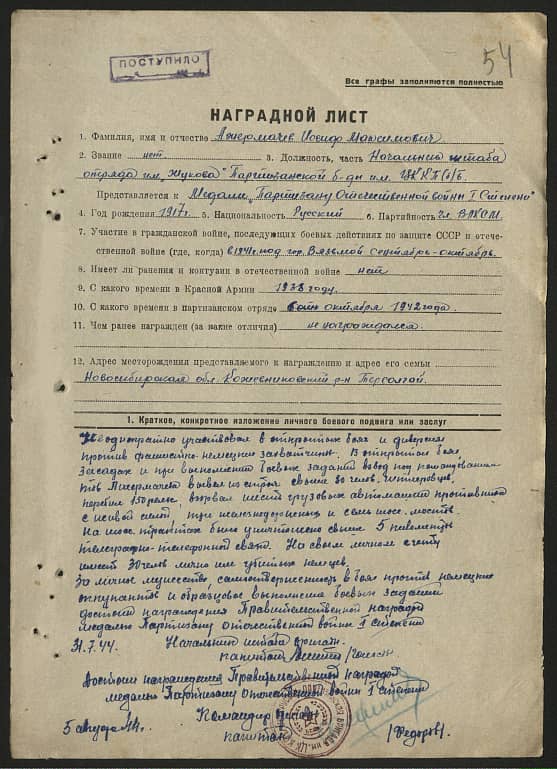 54
ПОСТУПИЛО
Все графы заполняются полностью
НАГРАДНОЙ ЛИСТ
1. Фамилия, имя и отчество Иосиф Максимович.
2. Звание нет 3. Должность, часть Начальник штаба
отряда им. "Жукова" Партизанской б-ды им. ЦК КП(б)Б.
Представляется к Медали "Партизану Отечественной войны I степени"
4. Год рождения 1917 г. 5. Национальность Русский 6. Партийность чл. ВЛКСМ.
7. Участие в гражданской войне, последующих боевых действиях по защите СССР и отече-
ственной войне (где, когда) в 1941 г. под гор. Вязьмой сентябрь-октябрь.
8. Имеет ли ранения и контузии в отечественной войне нет
9. С какого времени в Красной Армии 1938 году.
10. С какого времени в партизанском отряде октября 1942 года.
11. Чем ранее награжден (за какие отличия) не награждался.
12. Адрес месторождения представляемого к награждению и адрес его семьи
Новосибирская обл. Кожевниковский р-н
1. Краткое, конкретное изложение личного боевого подвига или заслуг
Неоднократно участвовал в открытых боях и диверсиях
против фашистко-немецких захватчиков. В открытом бою,
засадах и при выполнении боевых заданий взвод под командовани-
вывел из строя свыше 80 челов. гитлеровцев,
перебил 150 рельс, взорвал шесть грузовых автомашин противника
с живой силой, три железнодорожных и семь шос. мостов.
На шос. трактах было уничтожено свыше 5 километров
телеграфно-телефонной связи. На своем личном счету
имеет 30 челов. лично им убитых немцев.
За личное мужество, самоотверженность в боях против немецких
оккупантов и образцовое выполнение боевых заданий
достоин награждения Правительственной награды
медалью Партизану отечественной войны I степени
31.7.44. Начальник штаба бригады
капитан
Достоин награждения Правительственной наградой
медалью Партизану отечественной войны I степени
Командир бригады
5 августа 44. капитан /Федоров/.